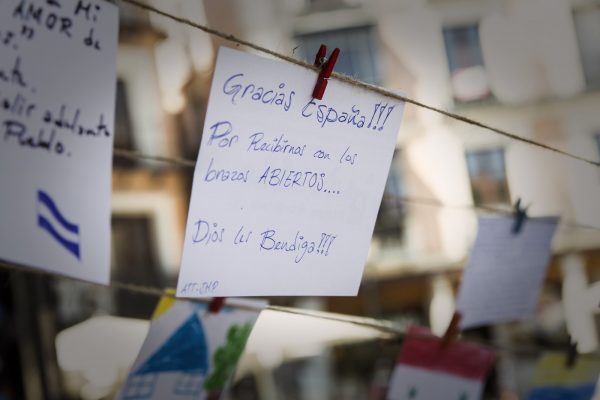 Mi
AMOR de
nte.
salir adelante
Pueblo.
Gracias España!!!
Por Recibirnos con los
brazos ABIERTOS....
Dios les Bendiga!!!
ATT-JHP